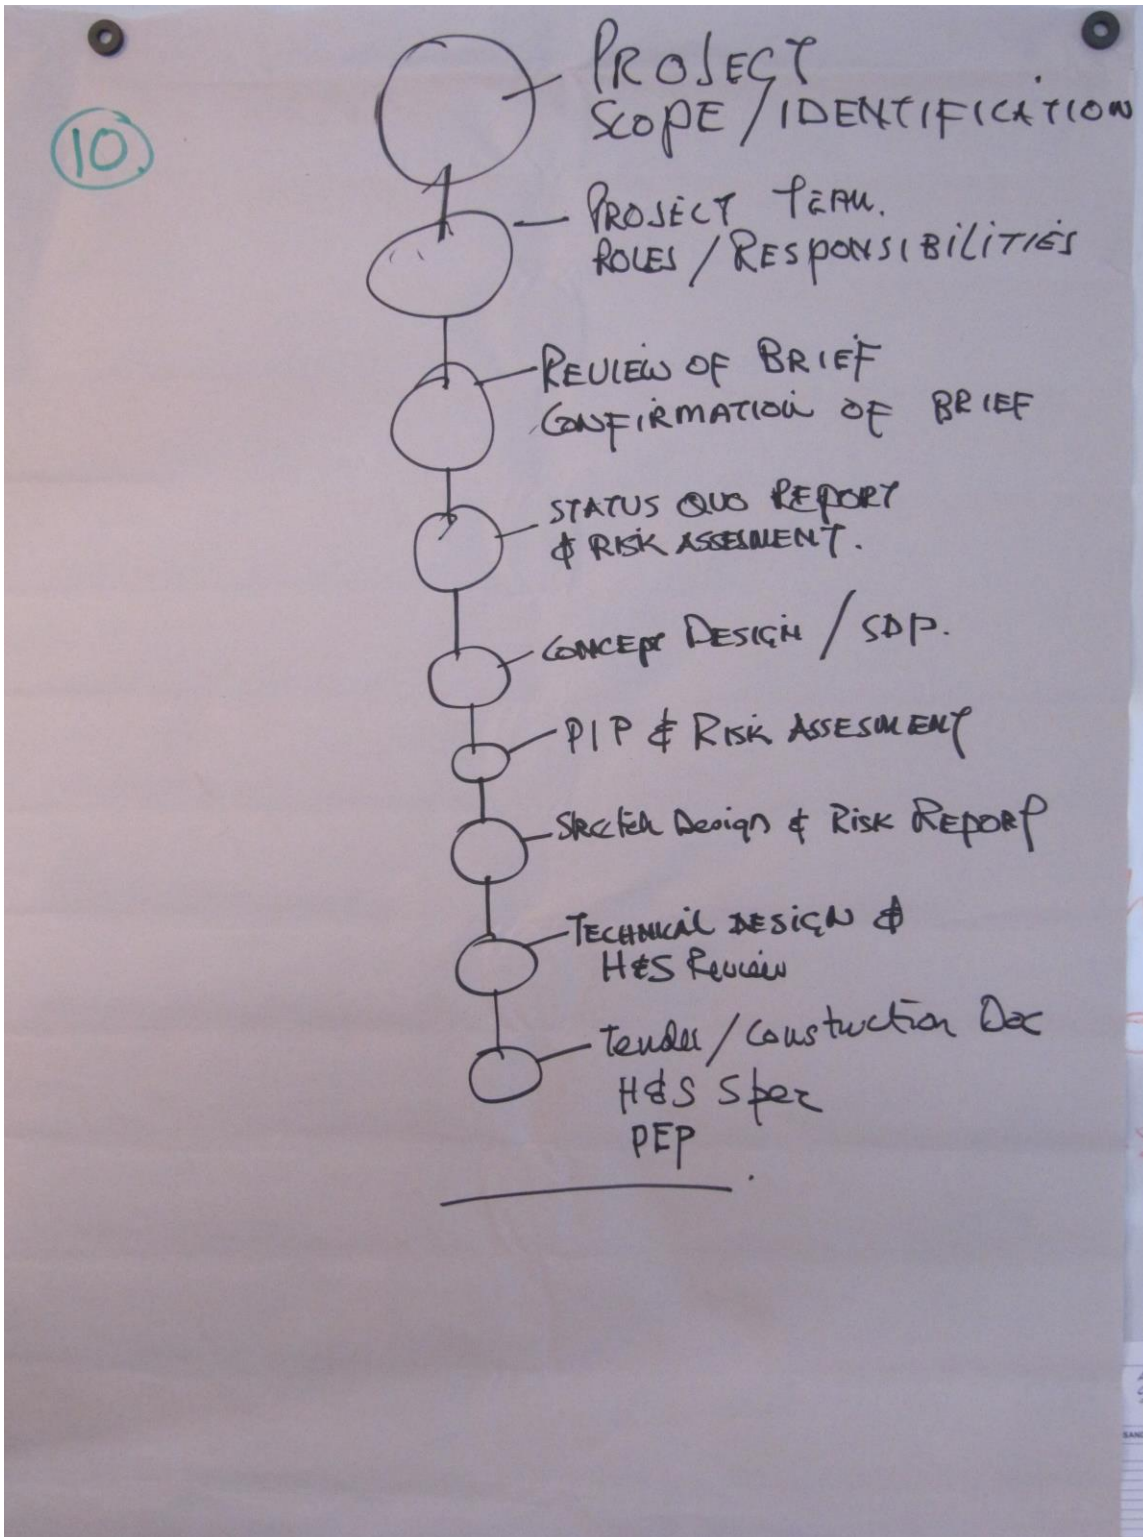 10
PROJECT
SCOPE / IDENTIFICATION
PROJECT TEAM.
ROLES / RESPONSIBILITIES
REVIEW OF BRIEF
CONFIRMATION OF BRIEF
STATUS QUO REPORT
& RISK ASSESMENT.
CONCEPT DESIGN / SDP.
PIP & RISK ASSESMENT
Sketch Design & Risk REPORT
TECHNICAL DESIGN &
H&S Review
Tender / Construction Doc
H&S Spec
PEP